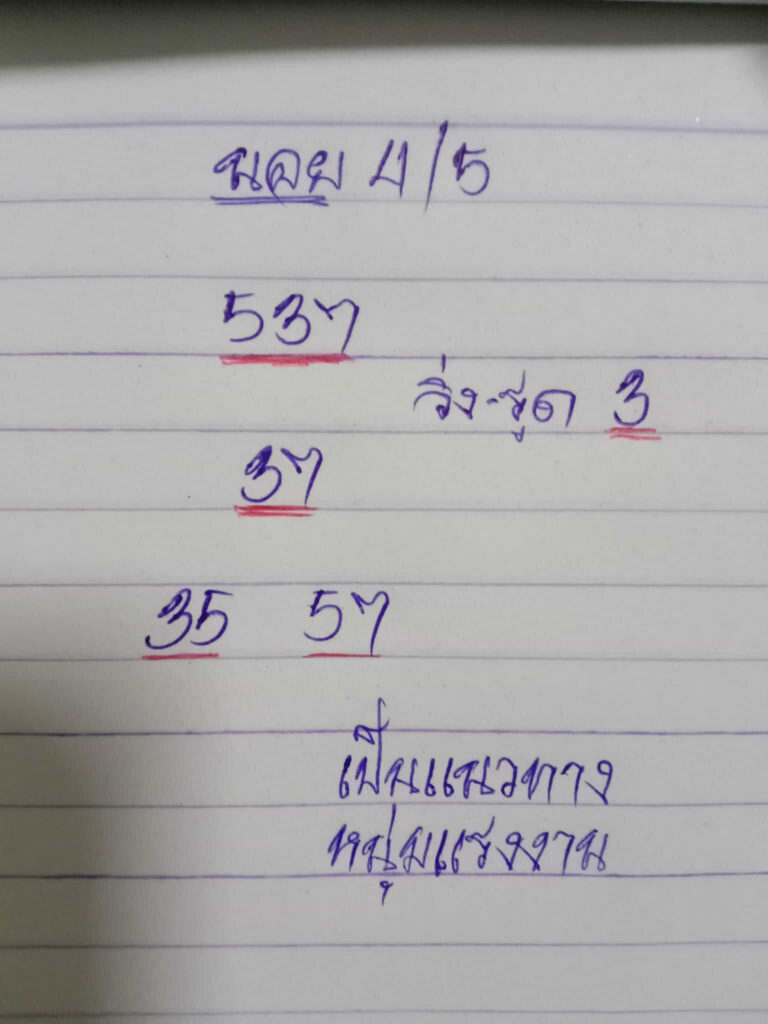 นอย 4/5
537
วิ่ง-รูด 3
37
35 57
เป็นแนวทาง
หนุ่มแรงงาน